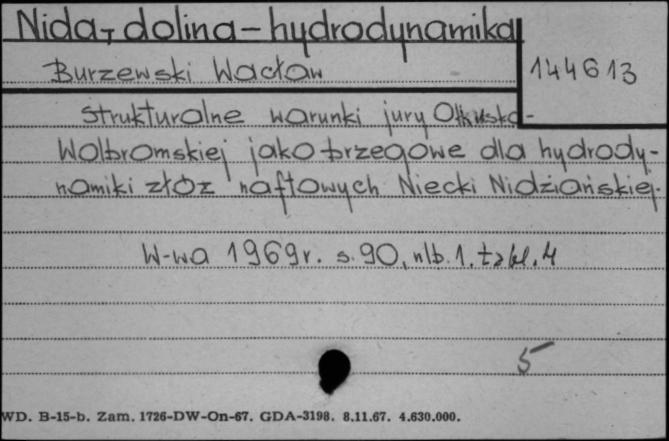 Nida, dolina - hydrodynamika
Burzewski Wacław
144613
strukturalne warunki jury Olkusko-
Wolbromskiej jako brzegowe dla hydrody-
namiki złóż naftowych Niecki Nidziańskiej.
W-wa 1969r. s. 90, nlb. 1. tabl. 4
5
WD. B-15-b. Zam. 1726-DW-On-67. GDA-3198. 8.11.67. 4.630.000.